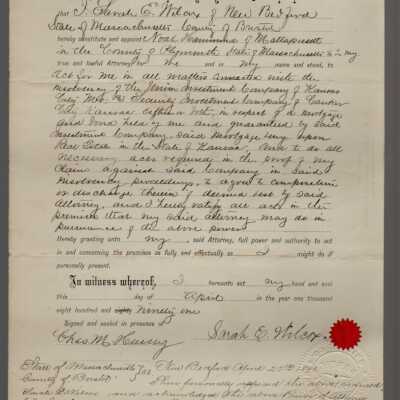 that I, Sarah E. Wilcox of New Bedford
State of Massachusetts County of Bristol
hereby constitute and appoint Noah Hammond of Mattapoisett
in the County of Plymouth State of Massachusetts to be my
true and lawful Attorney in me and in my name and stead, to
Act for me in all matters connected with the
insolvency of the Investment Company of Kansas
City, Mo. Security Investment Company of
City Kansas either or both, in respect of a mortgage
and bond held by me and guaranteed by said
Investment Company, said Mortgage being upon
Real Estate in the State of Kansas, And to do all
necessary acts required in the proof of my
claim against said Company in said
insolvency proceedings, to agree to composition
or discharge therein if deemed best by said
Attorney, and I hereby ratify all acts in the
premises that my said Attorney may do in
pursuance of the above power
hereby granting unto my said Attorney, full power and authority to act
in and concerning the premises as fully and effectually as I might do if
personally present.
In witness whereof, I hereunto set my hand and seal
this day of April in the year one thousand
eight hundred and eighty ninety one
Signed and sealed in presence of
Chas M. Hussey Sarah E. Wilcox
State of Massachusetts ss New Bedford April
County of Bristol Then personally appeared the above
and acknowledged the above